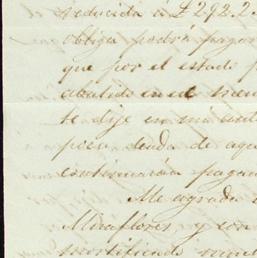 reducida a £292.2
obliga podrá pagar
que por el estado
abatido en el
te dije en mi
poca deuda de aqu
continuacion pagan
Me agrada
Miraflores y con
mortificado